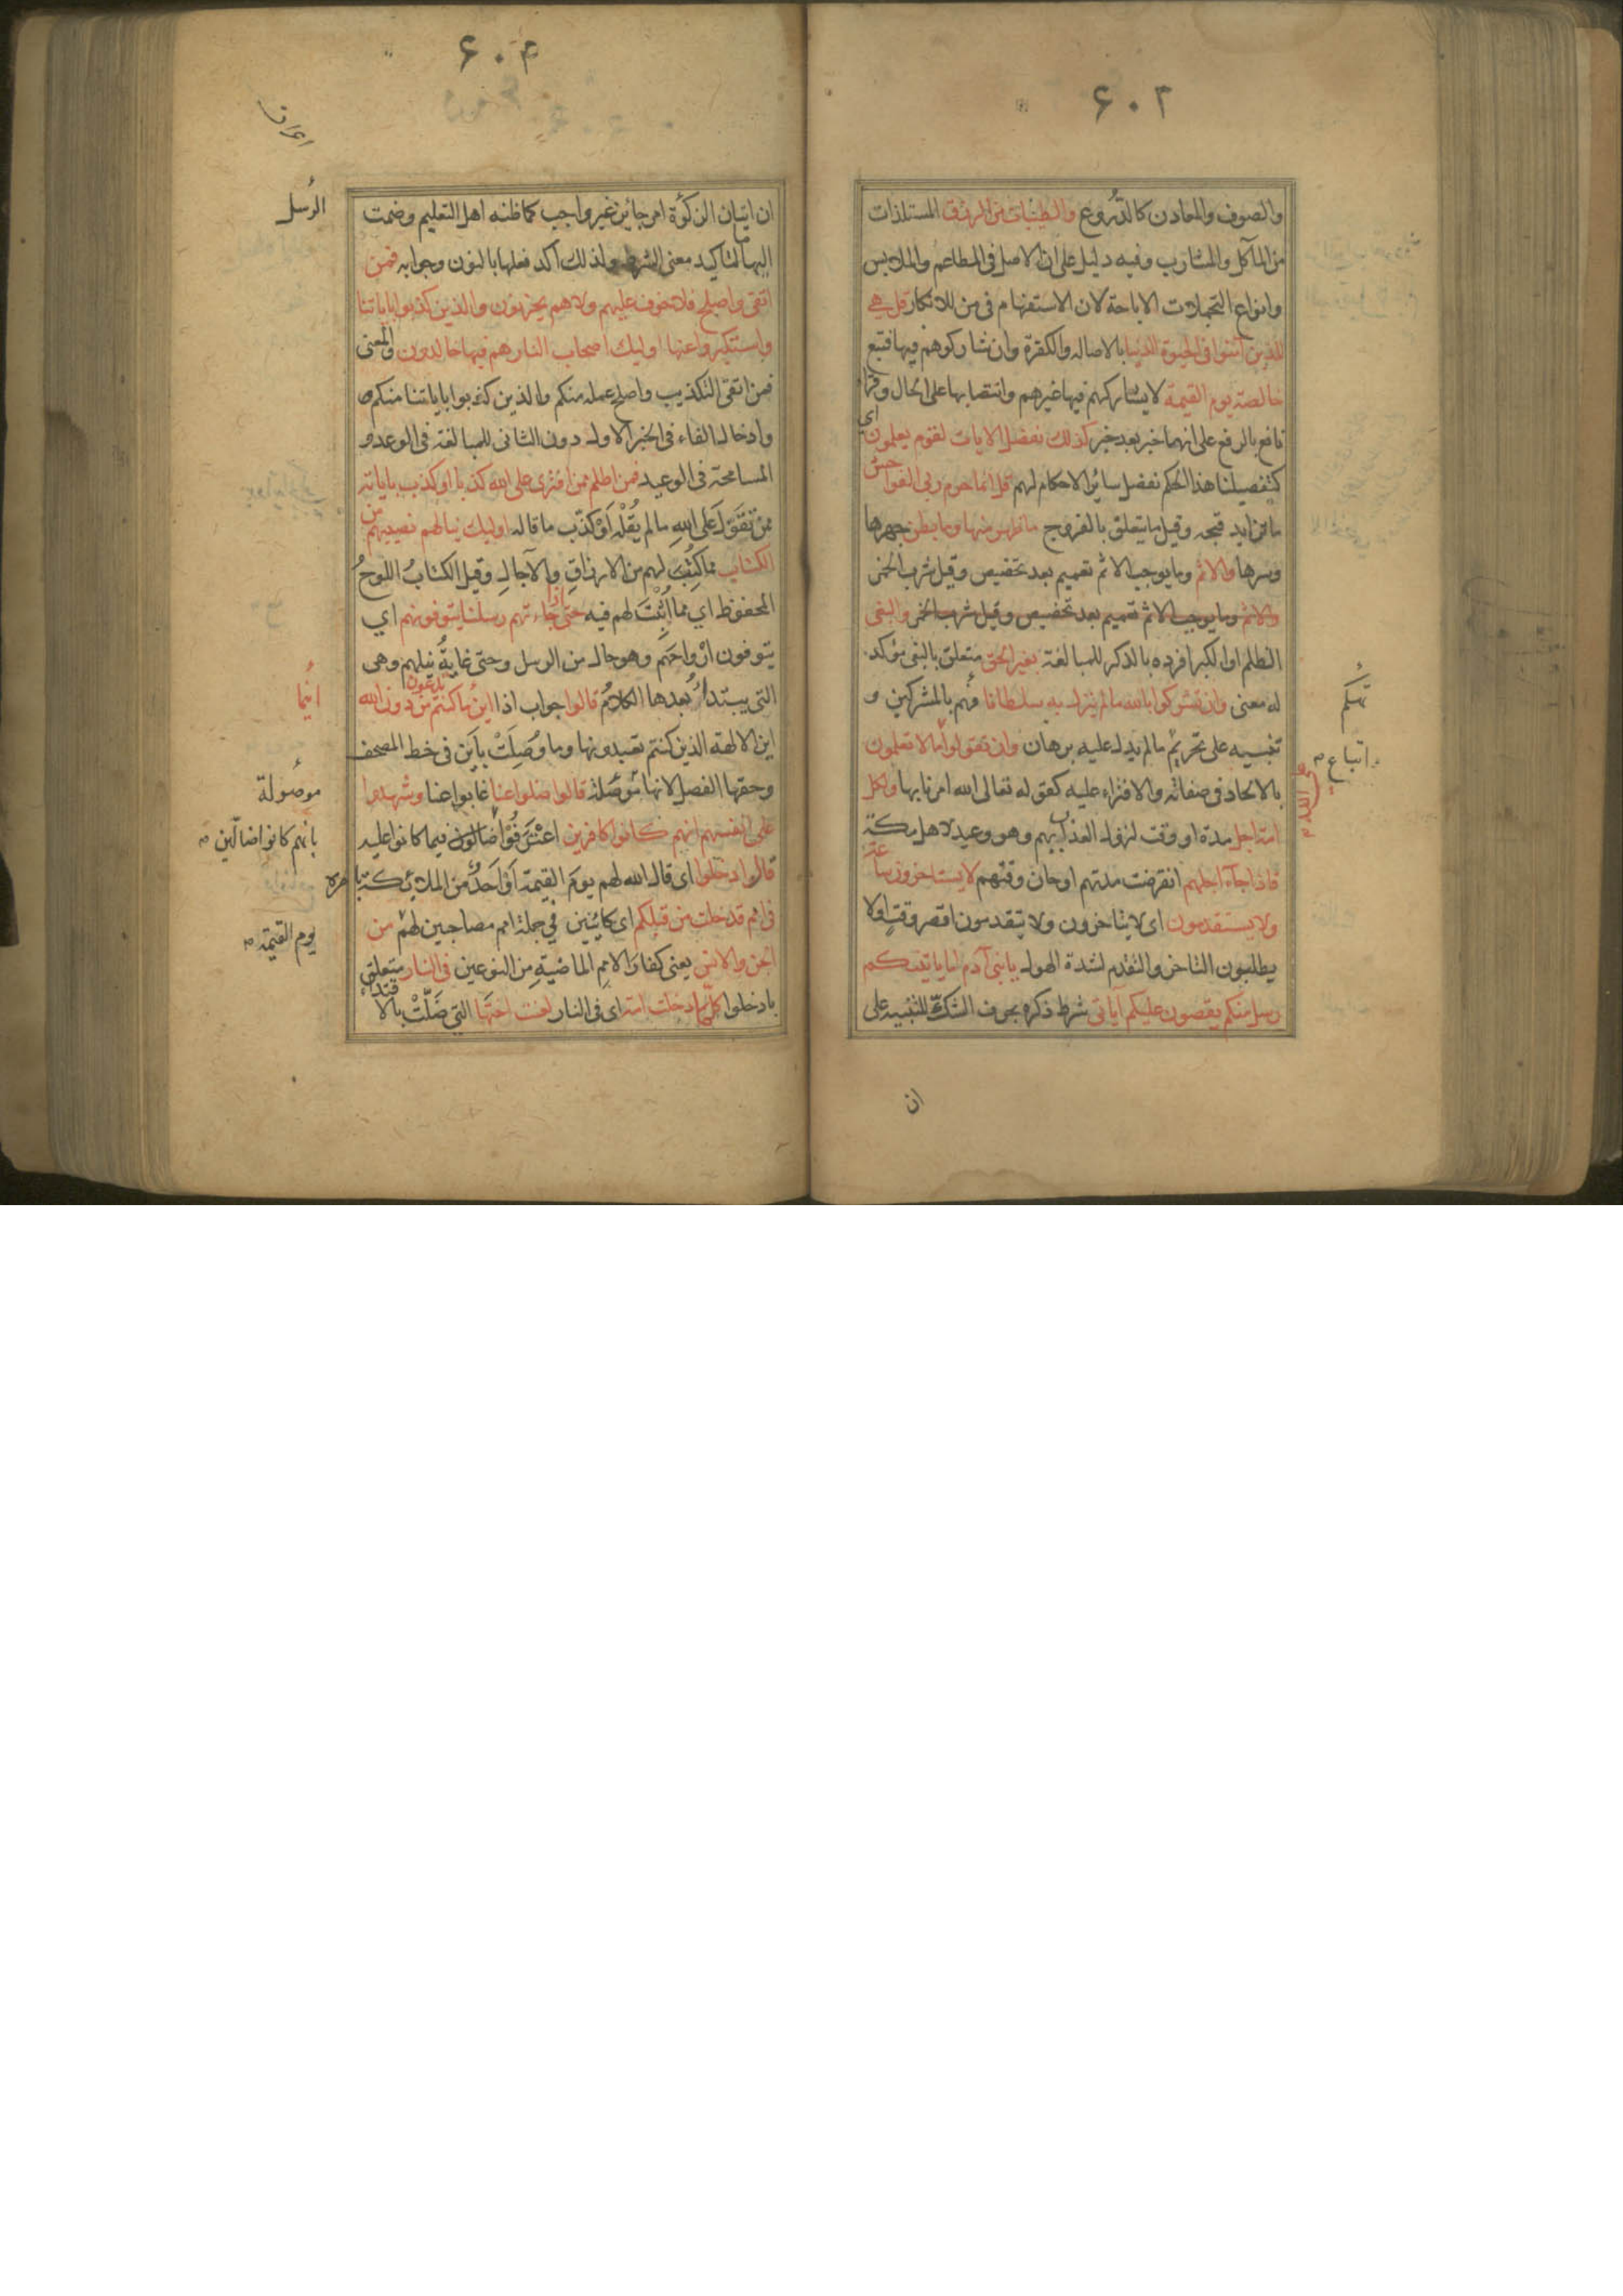 ٦٠٣
والصوف والمعادن كالدُّروع والطيّبات من الرزق المستلذات
من المآكل والمشارب وفيه دليل على ان الاصل فى المطاعم والملابس
وانواع التجملات الاباحة لان الاستفهام فى من للانكار قل هي
للذين آمنوا فى الحيوة الدنيا بالاصاله والكفرة وان شاركوهم فيها فتبع
خالصة يوم القيمة لايشاركهم فيها غيرهم وانتصابها على الحال وقرأ
نافع بالرفع على انها خبر بعد خبر كذلك نفصل الايات لقوم يعلمون اي
كتفصيلنا هذا الحكم نفصل سائر الاحكام لهم قل انما حرم ربى الفواحش
ماتزايد قبحه وقيل مايتعلق بالفروج ماظهر منها ومابطن جهرها
وسرها والاثم ومايوجب الاثم تعميم بعد تخصيص وقيل شرب الخمر
والاثم ومايوجب الاثم تعميم بعد تخصيص وقيل شرب الخمر والبغى
الظلم او الكبر افرده بالذكر للمبالغة بغير الحق متعلق بالبغى مؤكد
له معنى وان تشركوا بالله مالم ينزل به سلطانا تهكم بالمشركين و
تنبيه على تحريم اتباع مالم يدل عليه برهان وان تقولوا على الله مالاتعلمون
بالالحاد فى صفاته والافتراء عليه كقوله تعالى الله امرنا بها ولكل
امة اجل مدة او وقت لنزول العذاب بهم وهو وعيد لاهل مكة
فاذا جاء اجلهم انقرضت مدتهم او حان وقتهم لايستاخرون ساعة
ولايستقدمون اى لايتاخرون ولايتقدمون اقصر وقت اولا
يطلبون التاخر والتقدم لشدة الهول يابنى آدم اما ياتينكم
رسل منكم يقصون عليكم آياتى شرط ذكره بحرف الشك للتنبيه على
ان
تهكم
اتباع
على الله
٦٠٤
اعراف
ان اتيان الرسل امر جايز غير واجب كماظنه اهل التعليم وضمت
اليها ما لتاكيد معنى الشرط ولذلك اكد فعلها بالنون وجوابه فمن
اتقى واصلح فلاخوف عليهم ولاهم يحزنون والذين كذبوا باياتنا
واستكبروا عنها اوليك اصحاب النار هم فيها خالدون والمعنى
فمن اتقى التكذيب واصلح عمله منكم والذين كذبوا باياتنا منكم
وادخال الفاء فى الخبر الاول دون الثانى للمبالغة فى الوعد و
المسامحة فى الوعيد فمن اظلم ممن افترى على الله كذبا او كذب باياته
ممّن تقوّل على الله مالم يقُلْه اَوْ كذّب ماقاله اوليك ينالهم نصيبهم من
الكتاب مماكُتِبَ لهم من الارزاقِ والآجالِ وقيل الكتابُ اللوحُ
المحفوظ اي مما اُثْبِتَ لهم فيه حتى اذا جاءتهم رسلنا يتوفونهم اي
يتوفون اَرْواحَهم وهو حال من الرسل وحتى غايةُ نيلهم وهى
التى يبتدأُ بعدها الكلامُ قالوا جواب اذا اين ماكنتم تدعون من دون الله
اين الالهة الذين كنتم تعبدونها وما وُصِلَتْ باَيْن فى خط المصحف
وحقها الفصل لانها موصُولة قالوا ضلوا عنا غابوا عنا وشهدوا
على انفسهم انهم كانوا كافرين اعْتَرفُوْا بانهم كانوا ضالّين فيما كانوا عليه
قال ادخلوا اى قال الله لهم يومَ القيمة اَوْ اَحدٌ من الملائكة
فى امم قد خلت من قبلكم اى كائنين في جملة امم مصاحبين لهم من
الجن والانس يعنى كفار الامم الماضيةِ من النوعين فى النار متعلق
بادخلوا كلّما دخلت امة اى فى النار لعنت اختها التى ضَلّتْ بالاقتداء
الرُسل
ايْنما
موصُولة
بانهم كانوا ضالّين
يوم القيمة